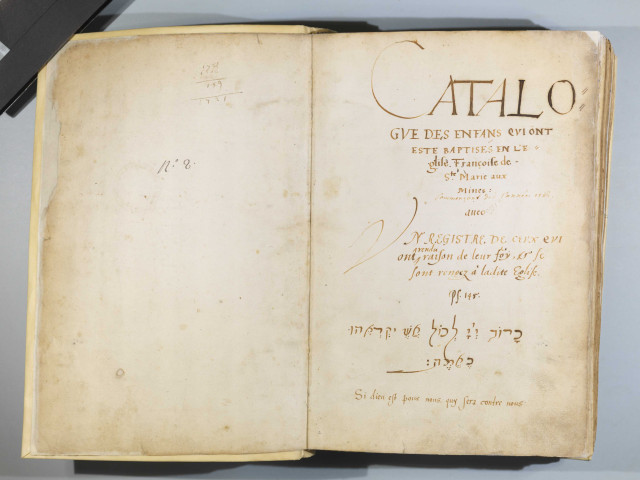 No. 8.
CATALO
GVE DES ENFANS QVI ONT
ESTE BAPTISES EN L'E-
glise Françoise de
Ste Marie aux
Mines:
auec
VN REGISTRE DE CEUX QVI
ont rendu raison de leur foy, et se
sont rengez à ladite Eglise.
Ps. 145.
קרוב
באמת:
Si dieu est pour nous, quy sera contre nous